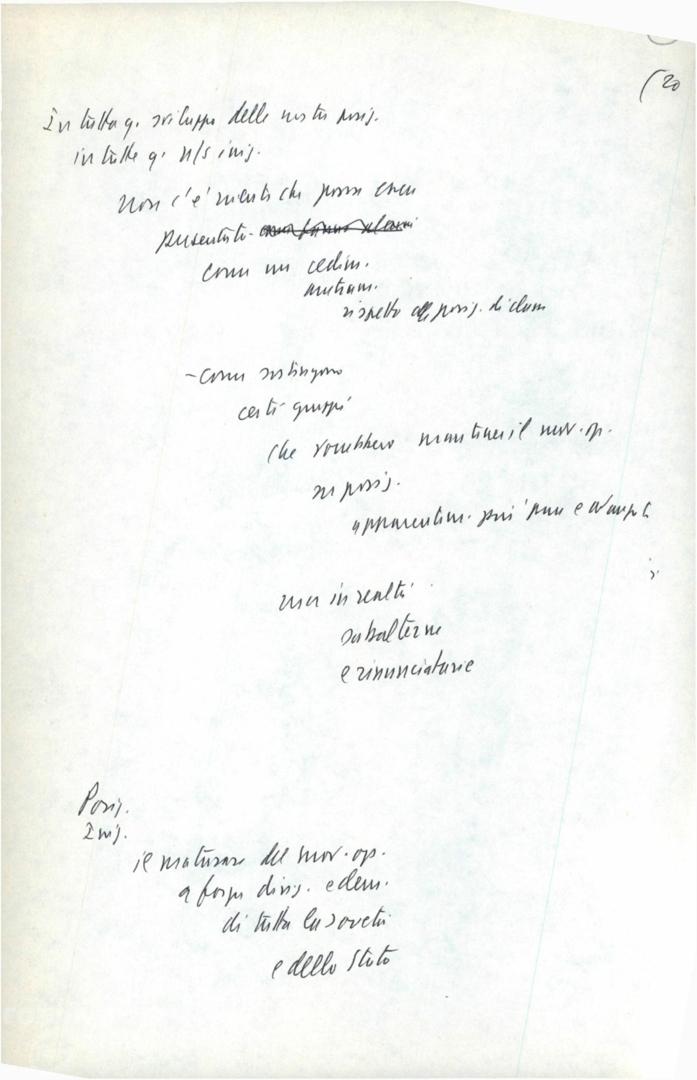 (20
In tutto q. sviluppo delle nostre posiz.
in tutte q. n/s iniz.
Non c'è niente che possa essere
presentato -
come un cedim.
mutam.
rispetto alle posiz. di classe
- come sostengono
certi gruppi
che vorrebbero mantenere il mov. op.
su posiz.
apparentem. più pure e avanzate
ma in realtà
subalterne
e rinunciatarie
Posiz.
Iniz.
il maturare del mov. op.
a forza dirig. e dem.
di tutta la società
e dello Stato